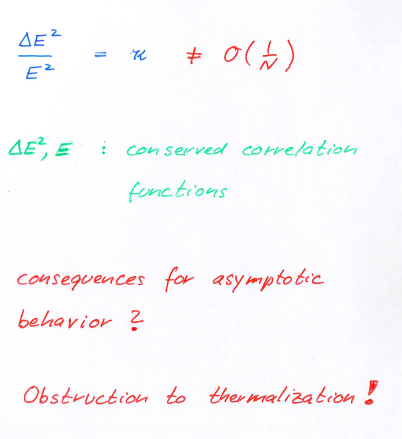 ΔE² / E² = κ ≠ O(1/N)
ΔE², E : conserved correlation
functions
consequences for asymptotic
behavior ?
Obstruction to thermalization !